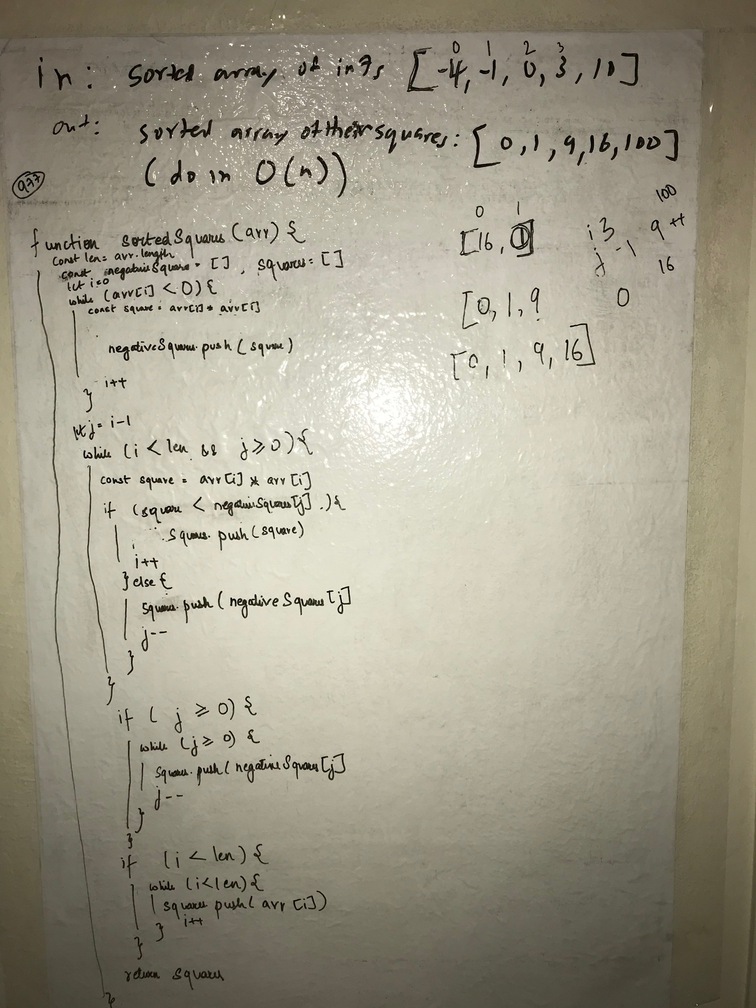 in: sorted array of ints [-4, -1, 0, 3, 10]
0 1 2 3
out: sorted array of their squares: [0, 1, 9, 16, 100]
(do in O(n))
977
function sortedSquares (arr) {
const len = arr.length
const negativeSquare = [], squares = []
let i=0
while (arr[i] < 0) {
const square = arr[i] * arr[i]
negativeSquares.push (square)
i++
}
let j = i-1
while (i < len && j ≥ 0) {
const square = arr[i] * arr[i]
if (square < negativeSquares[j]) {
squares.push (square)
i++
} else {
squares.push (negativeSquares[j]
j--
}
}
if ( j ≥ 0) {
while (j ≥ 0) {
squares.push (negativeSquares[j]
j--
}
}
if (i < len) {
while (i<len) {
squares push( arr [i])
i++
}
}
return squares
}
0 1
[16, 1]
i 3 9 ++
100
j -1 16
[0, 1, 9
0
[0, 1, 9, 16]